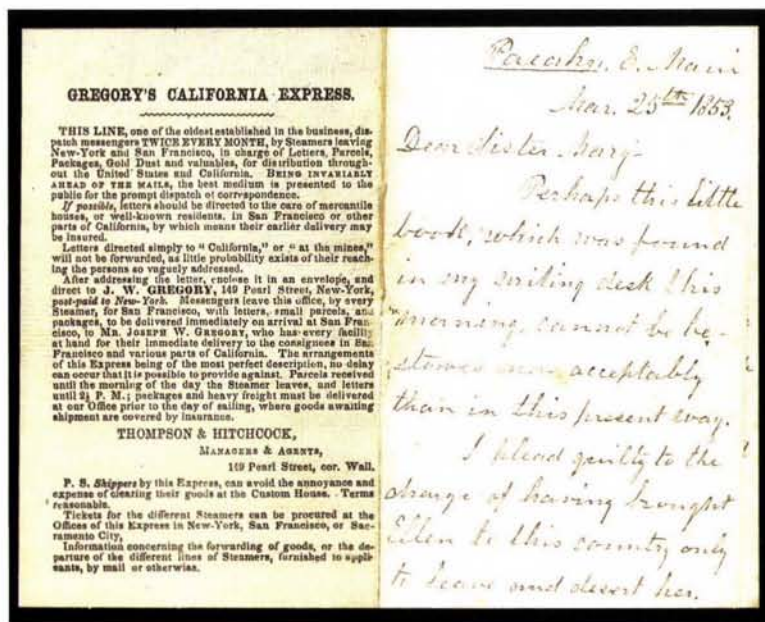 GREGORY'S CALIFORNIA EXPRESS.
THIS LINE, one of the oldest established in the business, dis-
patch messengers TWICE EVERY MONTH, by Steamers leaving
New-York and San Francisco, in charge of Letters, Parcels,
Packages, Gold Dust and valuables, for distribution through-
out the United States and California. BEING INVARIABLY
AHEAD OF THE MAILS, the best medium is presented to the
public for the prompt dispatch of correspondence.
If possible, letters should be directed to the care of mercantile
houses, or well-known residents, in San Francisco or other
parts of California, by which means their earlier delivery may
be insured.
Letters directed simply to "California," or "at the mines,"
will not be forwarded, as little probability exists of their reach-
ing the persons so vaguely addressed.
After addressing the letter, enclose it in an envelope, and
direct to J. W. GREGORY, 149 Pearl Street, New-York,
post-paid to New-York. Messengers leave this office, by every
Steamer, for San Francisco, with letters, small parcels, and
packages, to be delivered immediately on arrival at San Fran-
cisco, to MR. JOSEPH W. GREGORY, who has every facility
at hand for their immediate delivery to the consignees in San
Francisco and various parts of California. The arrangements
of this Express being of the most perfect description, no delay
can occur that it is possible to provide against. Parcels received
until the morning of the day the Steamer leaves, and letters
until 2½ P. M.; packages and heavy freight must be delivered
at our Office prior to the day of sailing, where goods awaiting
shipment are covered by insurance.
THOMPSON & HITCHCOCK,
MANAGERS & AGENTS,
149 Pearl Street, cor. Wall.
P. S. Shippers by this Express, can avoid the annoyance and
expense of clearing their goods at the Custom House. Terms
reasonable.
Tickets for the different Steamers can be procured at the
Offices of this Express in New-York, San Francisco, or Sac-
ramento City,
Information concerning the forwarding of goods, or the de-
parture of the different lines of Steamers, furnished to appli-
cants, by mail or otherwise.
E. Maui
Mar. 25th 1853.
Dear Sister Mary
Perhaps this little
book, which was found
in my writing desk this
morning cannot be be-
stowed more acceptably
than in this present way.
I plead guilty to the
charge of having brought
Ellen to this country only
to leave and desert her.